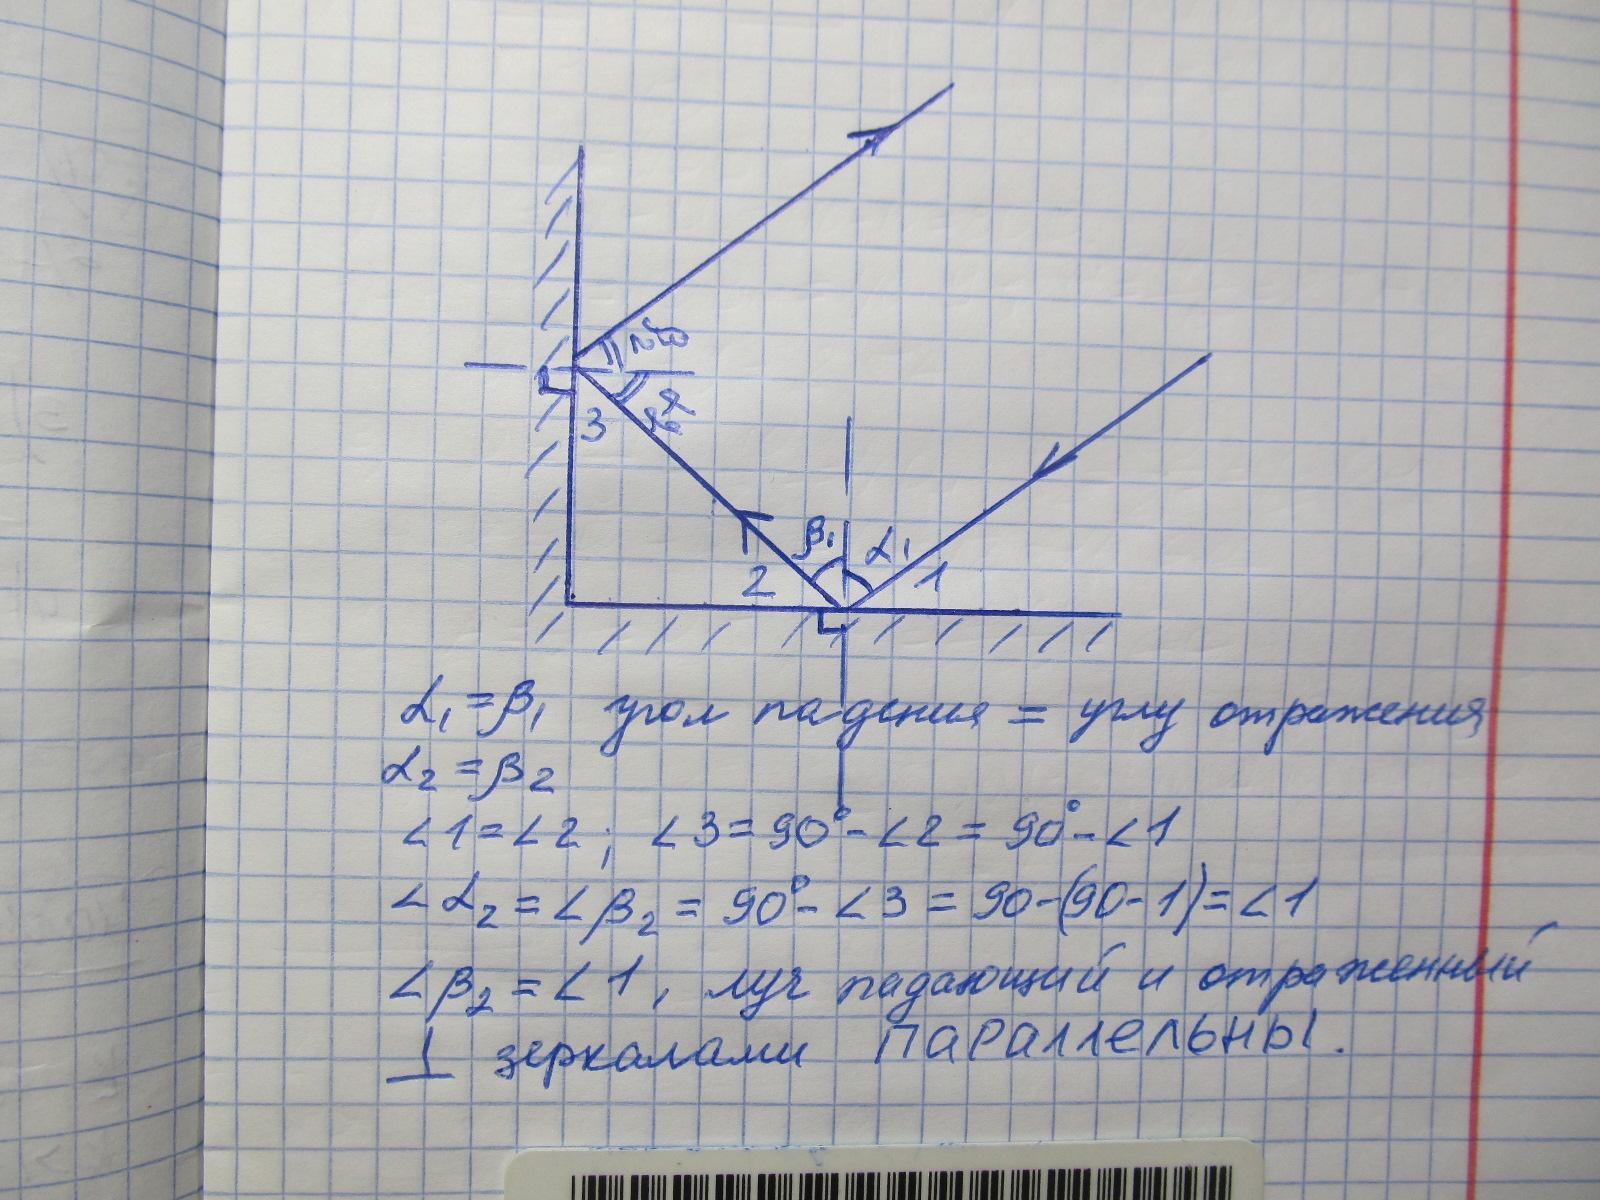 β₂
α₂
3
β₁ α₁
2 1
α₁ = β₁ угол падения = углу отражения
α₂ = β₂
∠1 = ∠2 ; ∠3 = 90° - ∠2 = 90° - ∠1
∠α₂ = ∠β₂ = 90° - ∠3 = 90 - (90 - 1) = ∠1
∠β₂ = ∠1 , луч падающий и отраженный
⊥ зеркалами ПАРАЛЛЕЛЬНЫ.